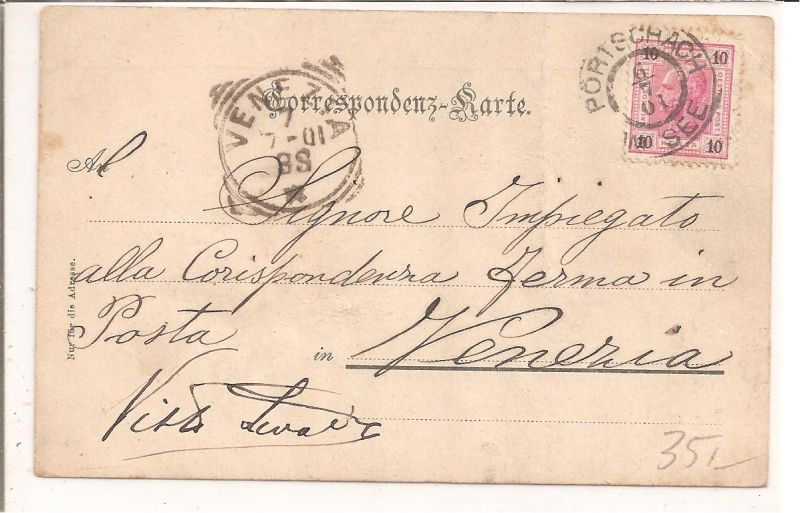 Correspondenz-Karte.
PÖRTSCHACH AM SEE
01
10
10
10
10
VENEZIA
7
7-01
8S
An
Signore Impiegato
alla Corispondenza Ferma in
Posta
in Venezia
Nur für die Adresse.
Visto
35,-